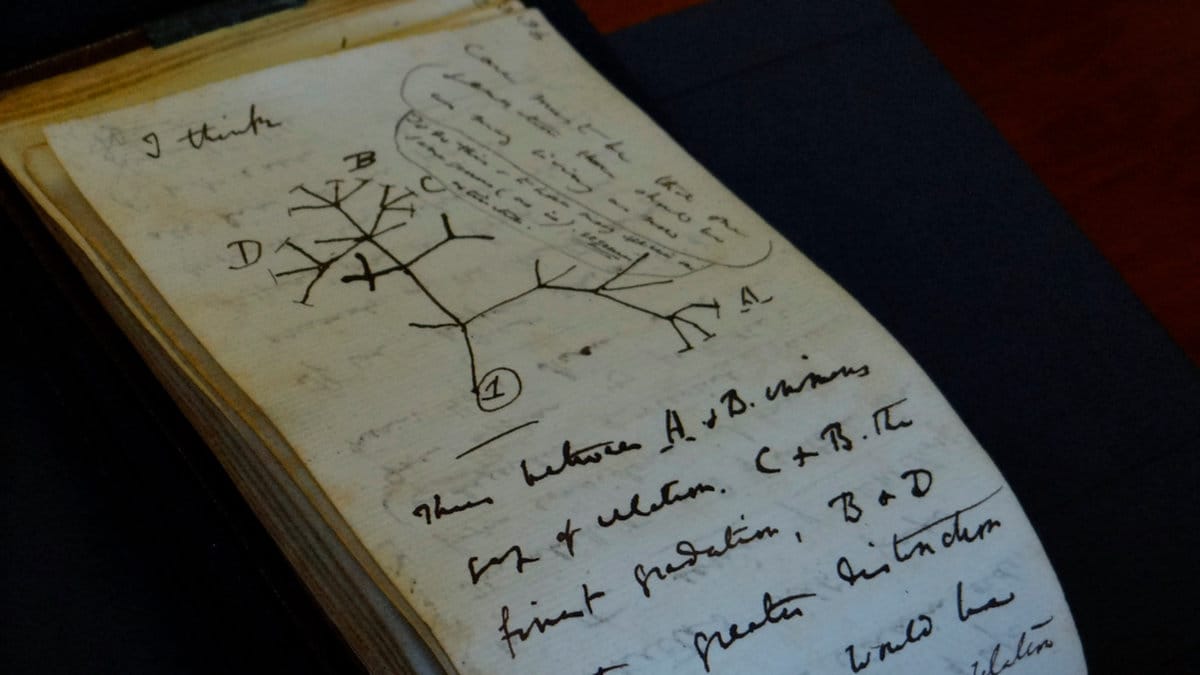 36
I think
Case must be that one
generation then should be
as many living as now
To do this & to have many species in
same genus (as is). requires
extinction.
B
C
D
A
1
Thus between A & B. immens
gap of relation. C & B. The
finest gradation, B & D
greater distinction
would be
relation